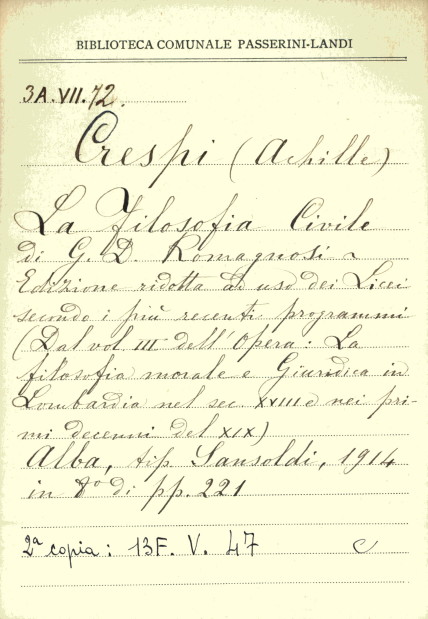 BIBLIOTECA COMUNALE PASSERINI-LANDI
3A.VII.72.
Crespi (Achille)
La Filosofia Civile
di G. D. Romagnosi ~
Edizione ridotta ad uso dei Licei
secondo i più recenti programmi
(Dal vol III dell'Opera: La
filosofia morale e Giuridica in
Lombardia nel sec XVIII e nei pri-
mi decenni del XIX)
Alba, tip. Sansoldi, 1914
in 8° di pp. 221
2ª copia: 13F. V. 47